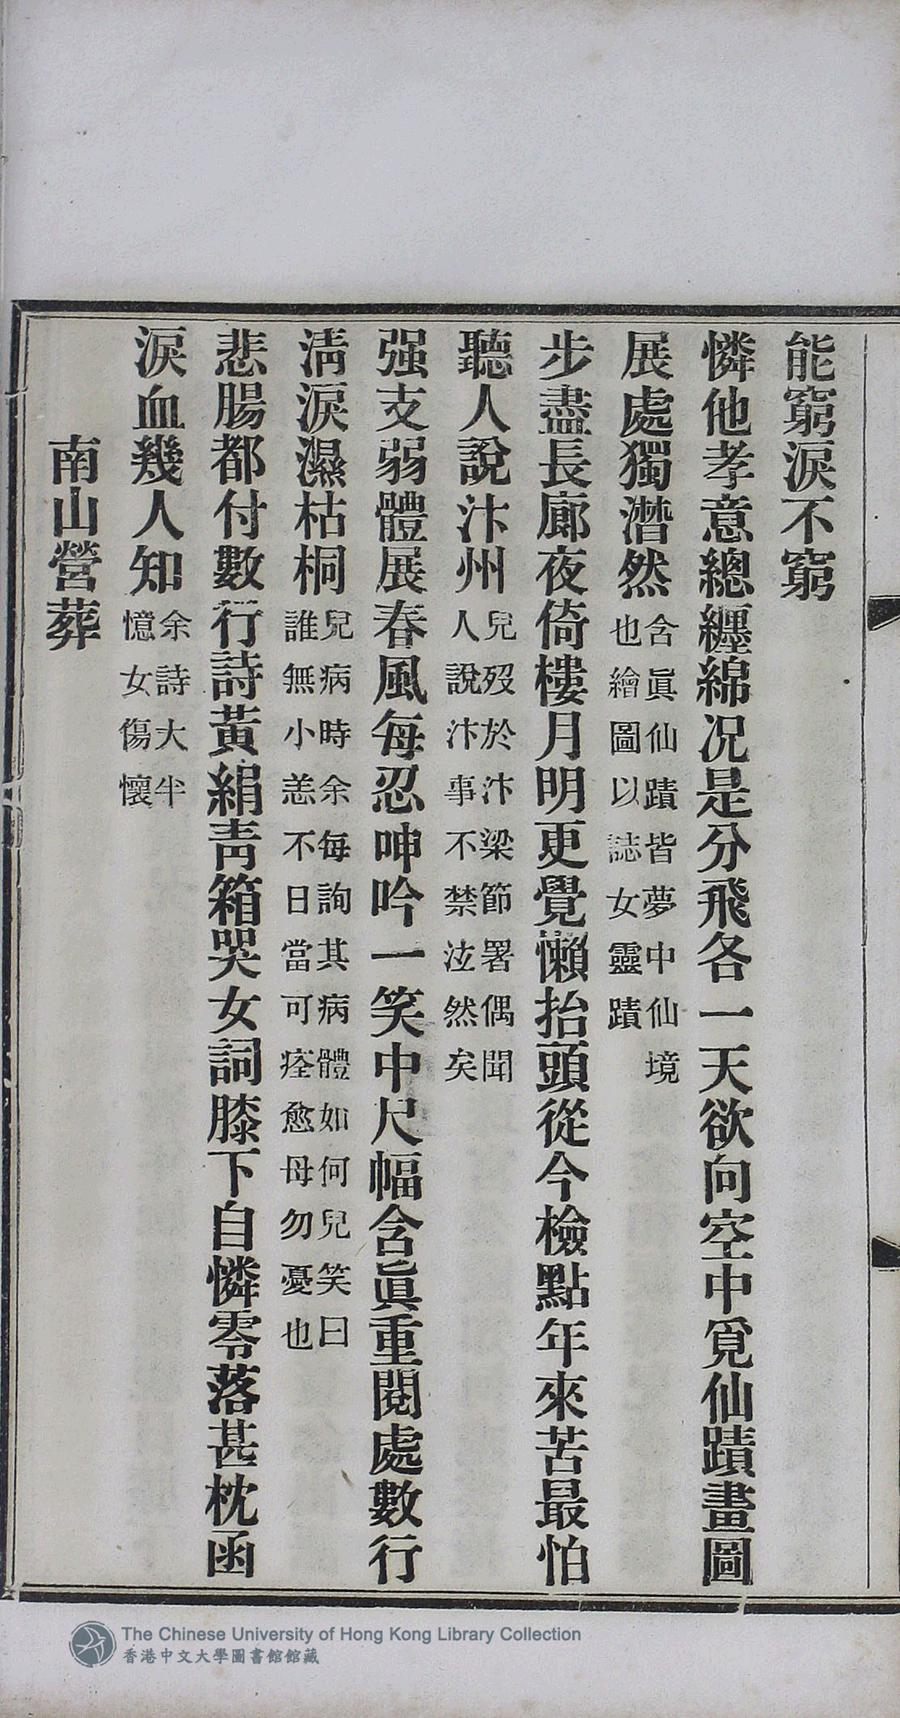 能窮淚不窮
憐他孝意總纒綿况是分飛各一天欲向空中覓仙蹟畫圖
展處獨潸然含眞仙蹟皆夢中仙境也繪圖以誌女靈蹟
步盡長廊夜倚樓月明更覺懶抬頭從今檢點年來苦最怕
聽人說汴州兒歿於汴梁節署偶聞人說汴事不禁泫然矣
强支弱體展春風每忍呻吟一笑中尺幅含眞重閱處數行
淸淚濕枯桐兒病時余每詢其病體如何兒笑曰誰無小恙不日當可痊愈母勿憂也
悲腸都付數行詩黃絹靑箱哭女詞膝下自憐零落甚枕函
淚血幾人知余詩大半憶女傷懷
南山營葬
The Chinese University of Hong Kong Library Collection
香港中文大學圖書館館藏